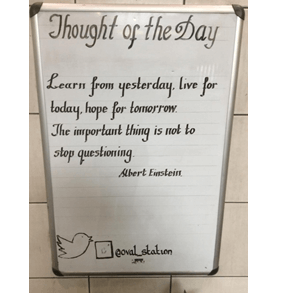 Thought of the Day
Learn from yesterday, live for
today, hope for tomorrow.
The important thing is not to
stop questioning.
Albert Einstein.
@oval_station